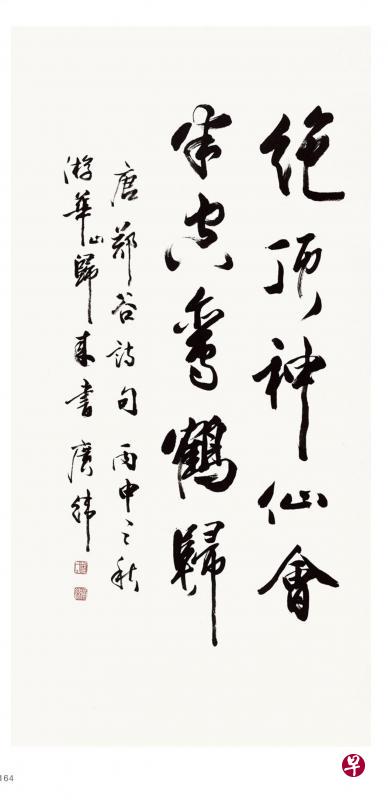 絕頂神仙會
半空鸞鶴歸
唐鄭谷詩句丙申之秋
游華山歸來書廣緯
164
早